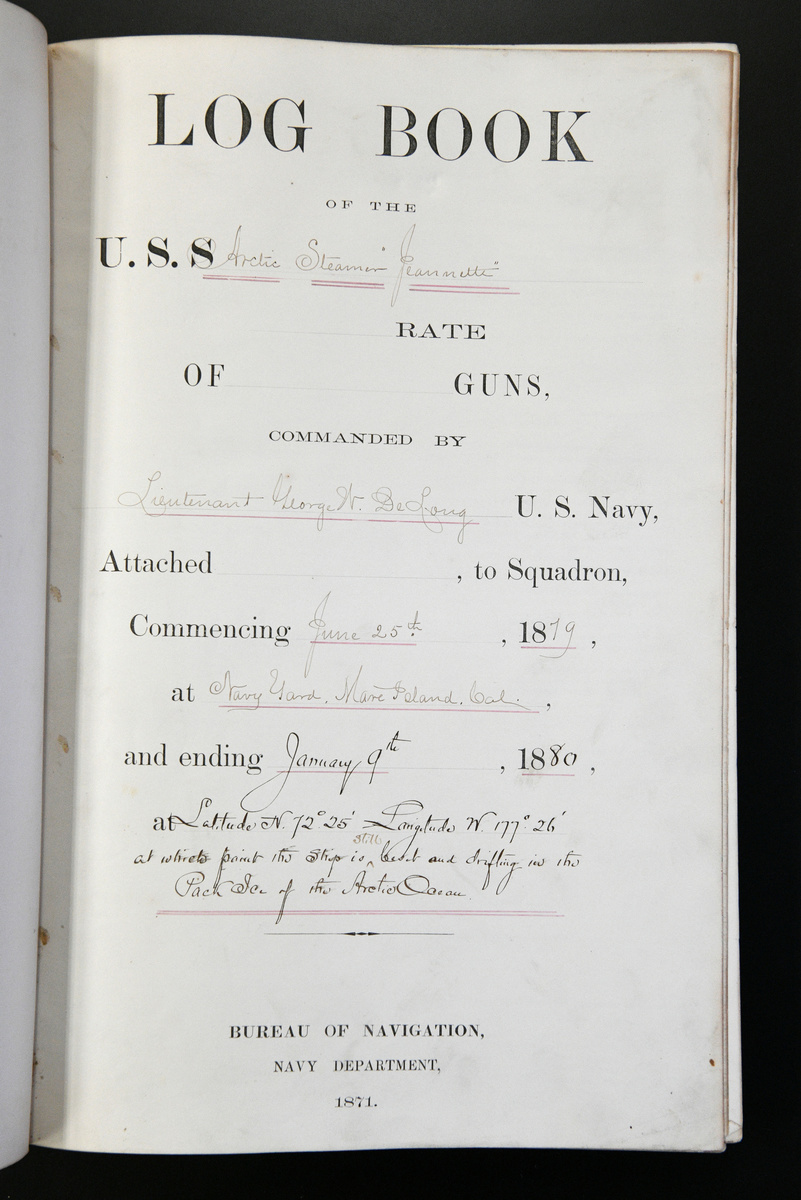 LOG BOOK
OF THE
U. S. S Arctic Steamer "Jeannette"
RATE
OF GUNS,
COMMANDED BY
Lieutenant George W. De Long U. S. Navy,
Attached , to Squadron,
Commencing June 25th , 1879 ,
at Navy Yard, Mare Island. Cal. ,
and ending January 9th , 1880 ,
at Latitude N. 72° 25' Longitude W. 177° 26'
still
at which point the Ship is ^ beset and drifting in the
Pack Ice of the Arctic Ocean
BUREAU OF NAVIGATION,
NAVY DEPARTMENT,
1871.